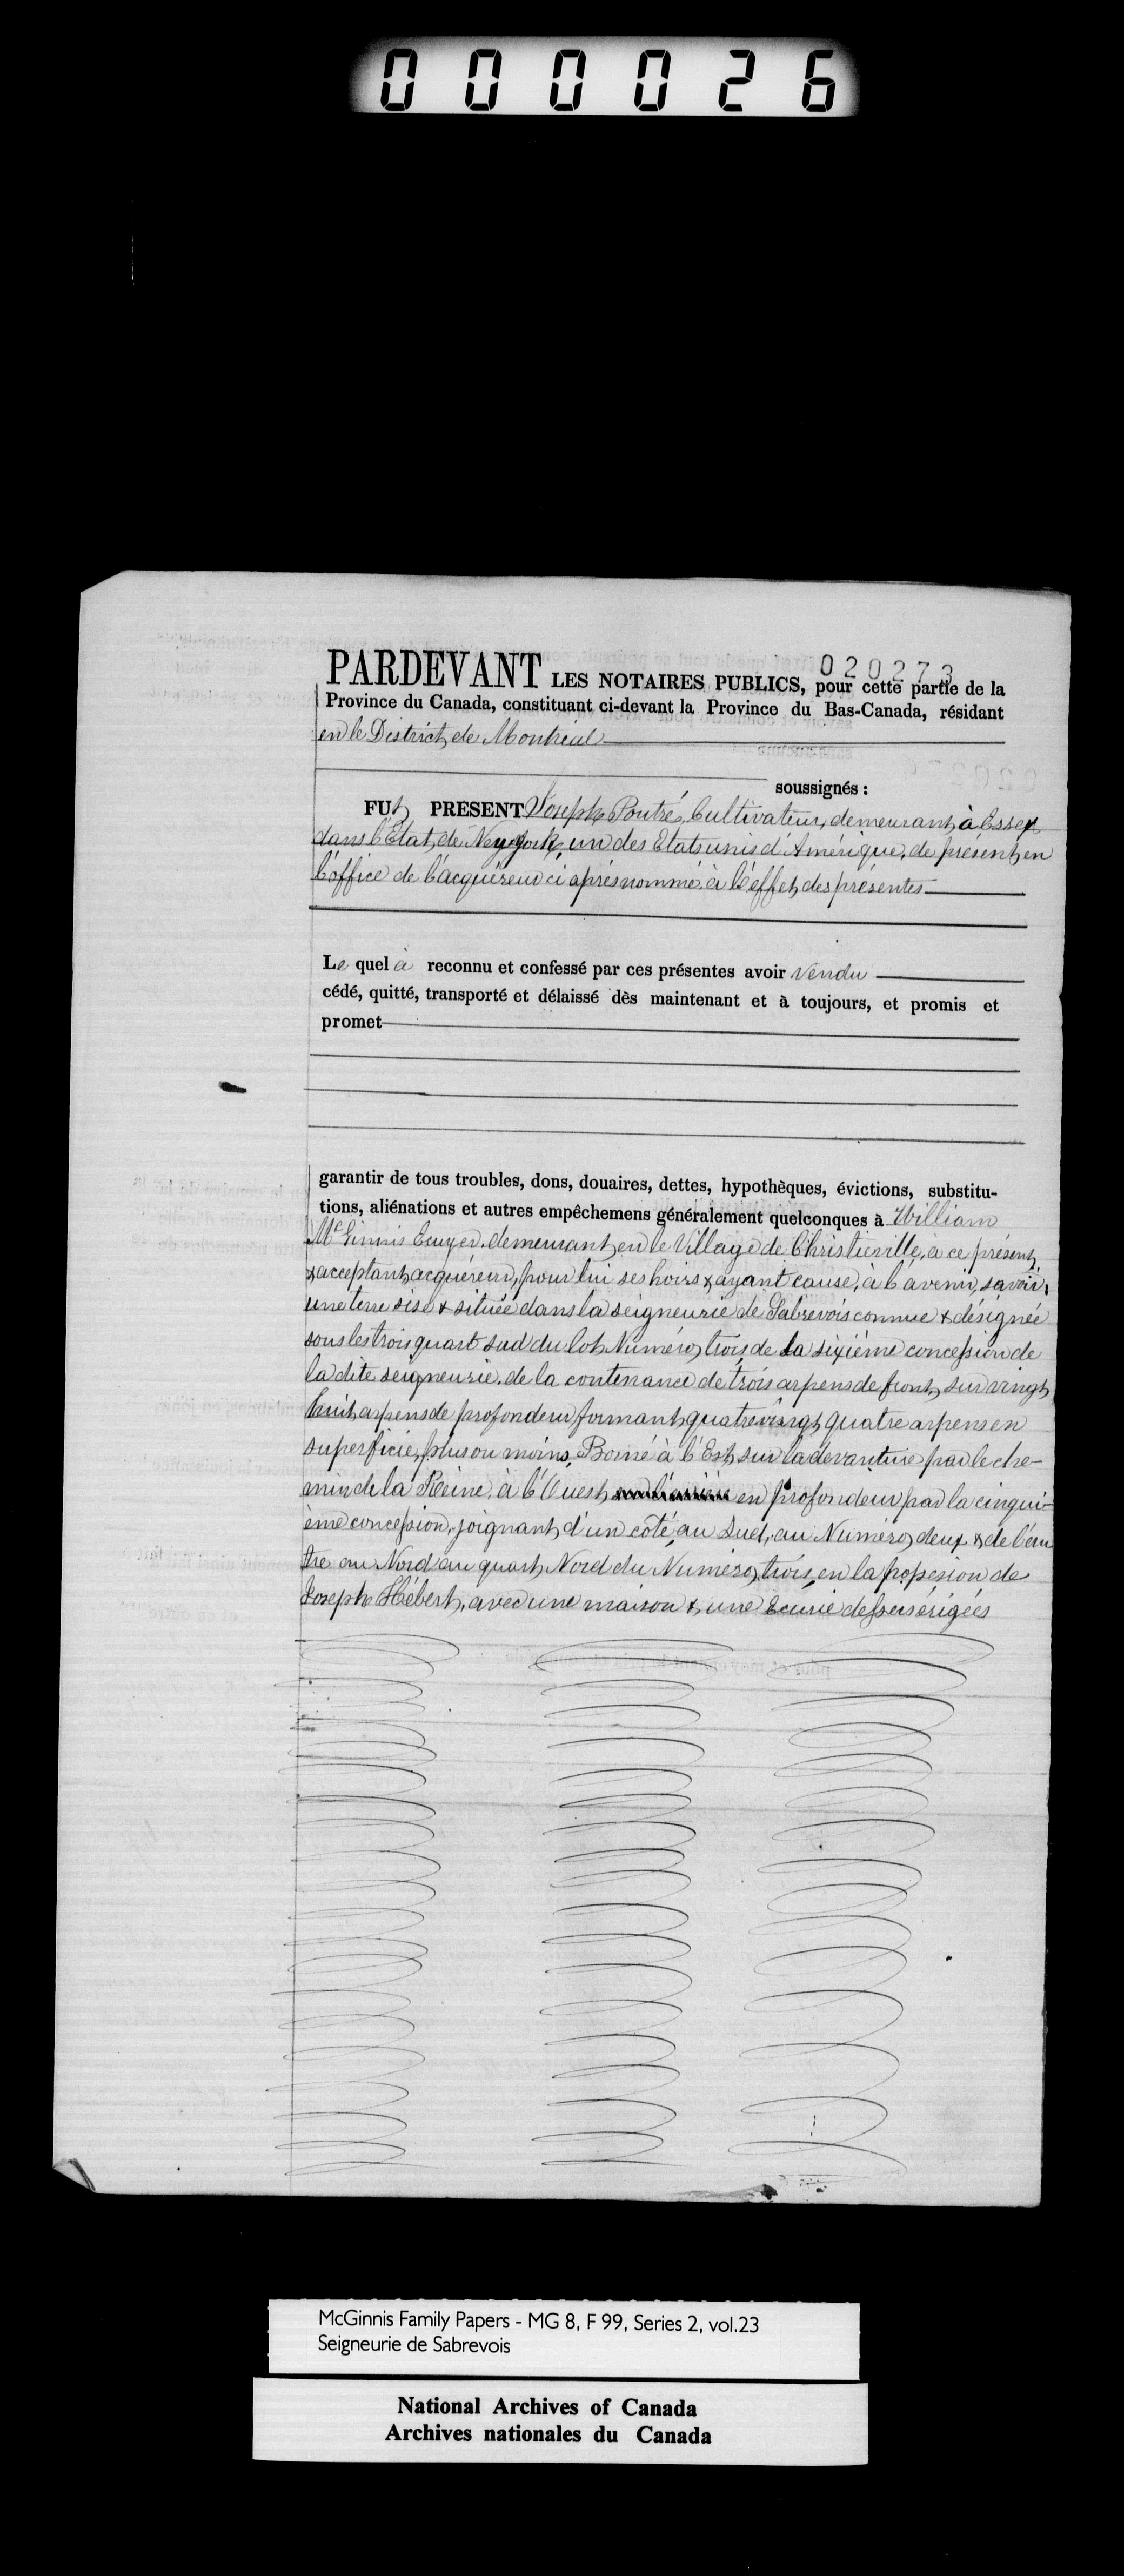 000026
020273
PARDEVANT LES NOTAIRES PUBLICS, pour cette partie de la
Province du Canada, constituant ci-devant la Province du Bas-Canada, résidant
en le District de Montréal
soussignés :
FUt PRESENT Joseph Poutré, Cultivateur, demeurant à Essex
dans l'Etat de New York, un des Etats unis d'Amérique, de présent en
l'office de l'acquéreur ci après nommé, à l'effet des présentes
Le quel à reconnu et confessé par ces présentes avoir vendu
cédé, quitté, transporté et délaissé dès maintenant et à toujours, et promis et
promet
garantir de tous troubles, dons, douaires, dettes, hypothèques, évictions, substitu-
tions, aliénations et autres empêchemens généralement quelconques à William
McGinnis Ecuyer, demeurant en le Village de Christieville, à ce présent
& acceptant acquéreur, pour lui ses hoirs & ayant cause, à l'avenir, savoir:
une terre sise & située dans la seigneurie de Sabrevois connue & désignée
sous les trois quart sud du lot Numéro trois de la sixième concession de
la dite seigneurie, de la contenance de trois arpens de front, sur vingt
huit arpens de profondeur formant quatrevingt quatre arpens en
superficie, plus ou moins, Borné à l'Est sur la devanture par le che-
min de la Reine, à l'Ouest en profondeur par la cinqui-
ème concession, joignant d'un côté au Sud, au Numéro deux & de l'au
tre au Nord au quart Nord du Numéro trois, en la possesion de
Joseph Hébert, avec une maison & une Ecurie dessus érigées
McGinnis Family Papers - MG 8, F 99, Series 2, vol.23
Seigneurie de Sabrevois
National Archives of Canada
Archives nationales du Canada